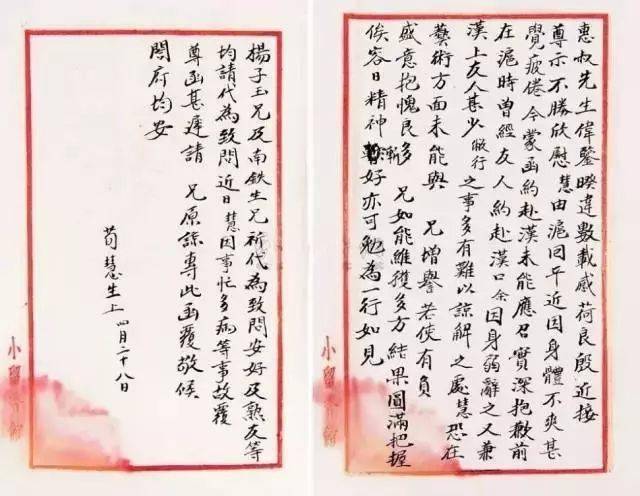 惠叔先生偉鑒暌違數載感荷良殷近接
尊示不勝欣慰慧由滬回平近因身體不爽甚
覺疲倦今蒙函約赴漢未能應召實深抱歉前
在滬時曾經友人約赴漢口余因身弱辭之又兼
漢上友人甚少做行之事多有難以諒解之處慧恐在
藝術方面未能與兄增譽若使有負
盛意抱愧良多兄如能維護多方結果圓滿把握
俟容日精神漸好亦可勉為一行如見
楊子玉兄及南鉄生兄祈代為致問安好及熟友等
均請代為致問近日慧因事忙多病等事故覆
尊函甚遲請兄原諒專此函覆敬候
閤府均安
荀慧生上四月二十八日
小留
小留